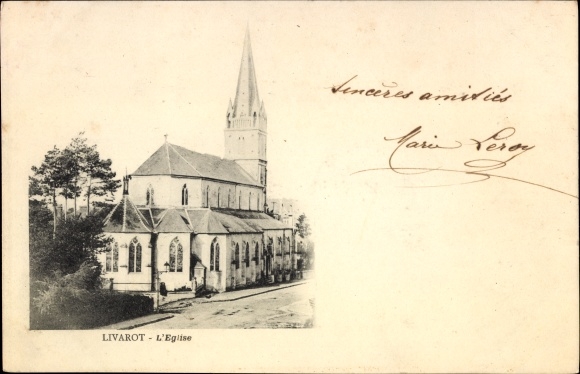 sincères amitiés
Marie Leroy
LIVAROT - L'Eglise